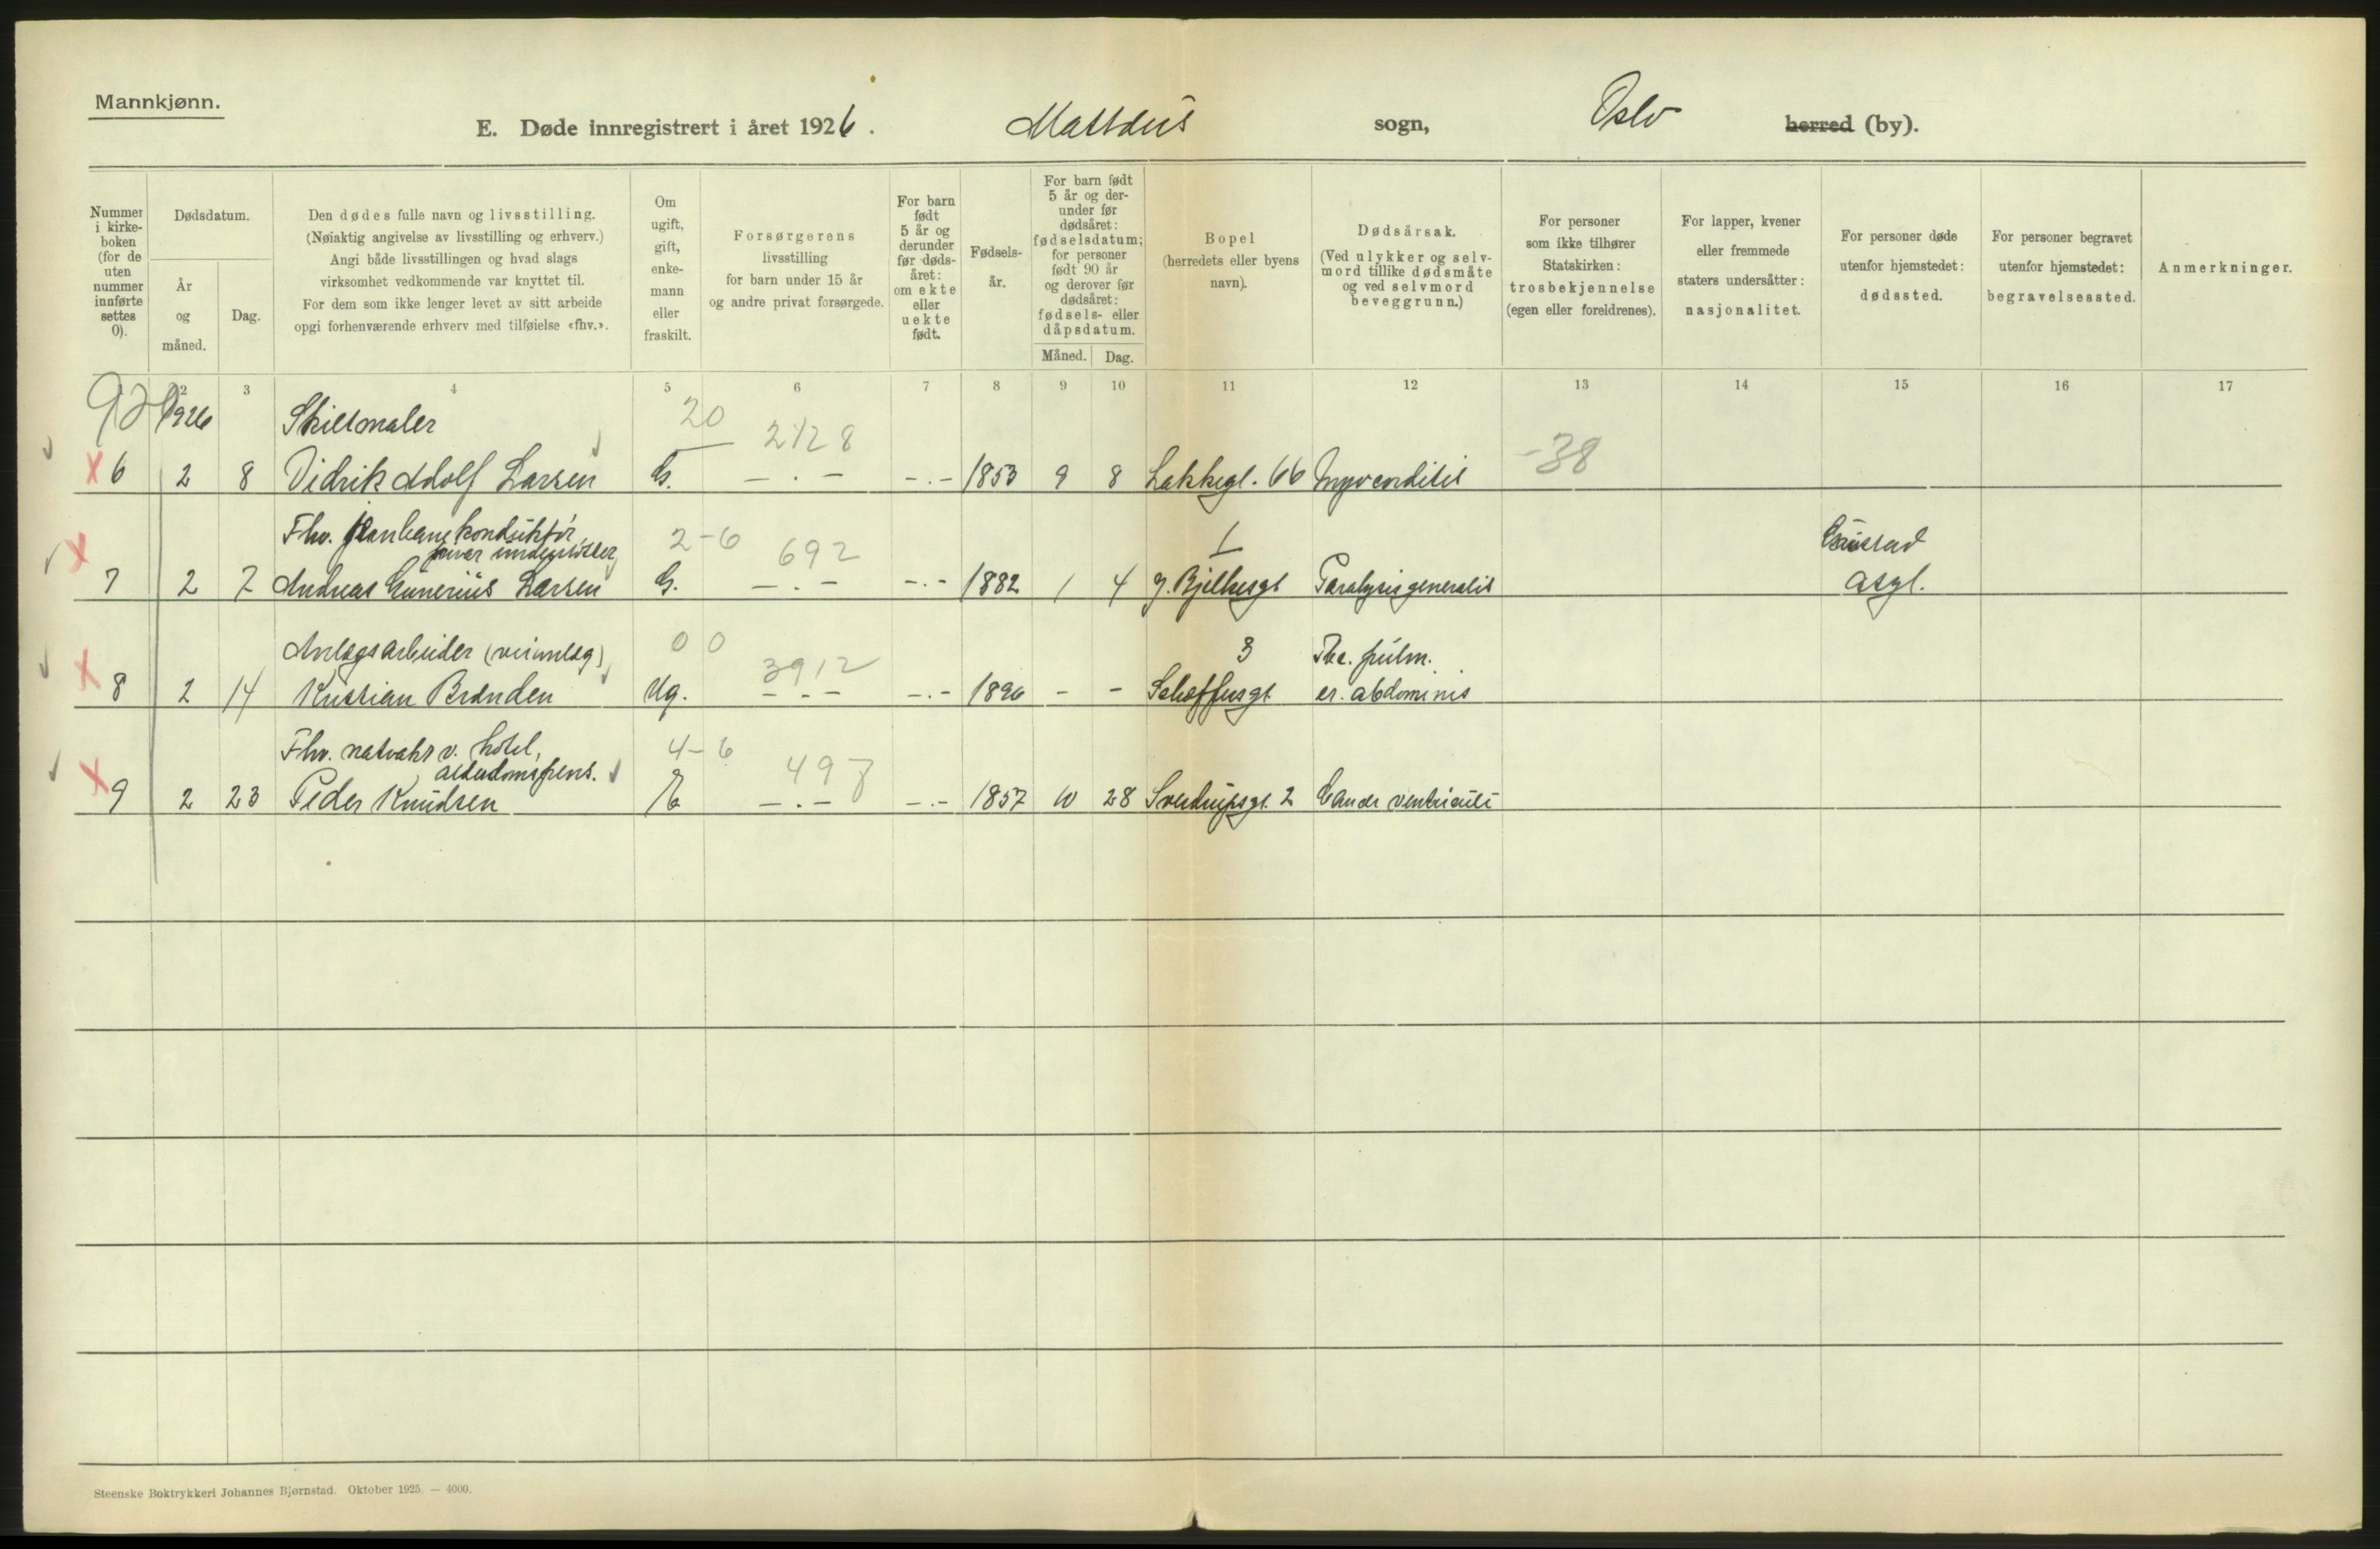 Mannkjønn.
E. Døde innregistrert i året 1926. Mattæus sogn, Oslo herred (by).
Nummer i kirkeboken (for de uten nummer innførte settes 0).
Dødsdatum.
År og måned.
Dag.
Den dødes fulle navn og livsstilling.
(Nøiaktig angivelse av livsstilling og erhverv.)
Angi både livsstillingen og hvad slags
virksomhet vedkommende var knyttet til.
For dem som ikke lenger levet av sitt arbeide
opgi forhenværende erhverv med tilføielse «fhv.».
Om ugift, gift, enkemann eller fraskilt.
Forsørgerens
livsstilling
for barn under 15 år
og andre privat forsørgede.
For barn født 5 år og derunder før dødsåret: om ekte eller uekte født.
Fødselsår.
For barn født 5 år og derunder før dødsåret: fødselsdatum; for personer født 90 år og derover før dødsåret: fødsels- eller dåpsdatum.
Måned. Dag.
Bopel
(herredets eller byens
navn).
Dødsårsak.
(Ved ulykker og selvmord tillike dødsmåte og ved selvmord beveggrunn.)
For personer
som ikke tilhører
Statskirken:
trosbekjennelse
(egen eller foreldrenes).
For lapper, kvener
eller fremmede
staters undersåtter:
nasjonalitet.
For personer døde
utenfor hjemstedet:
dødssted.
For personer begravet
utenfor hjemstedet:
begravelsessted.
Anmerkninger.
2 3 4 5 6 7 8 9 10 11 12 13 14 15 16 17
1926 Skiltmaler 20 2428
x 6 2 8 Vidrik Adolf Larsen G. — . — — . — 1853 9 8 Lakkegt. 66 Myocarditis -38
Fhv. jernbanekonduktør, 2-6 692 1 Gaustad
privat understøttet
x 7 2 7 Andreas Gunerius Larsen G. — . — — . — 1882 1 4 g. Bjelkesgt Paralysis generalis asyl.
Anlegsarbeider (veianleg) 00 3912 3 Tbc. pulm.
x 8 2 14 Kristian Brenden Ug. — . — — . — 1890 - - Schøffusgt et. abdominis
Fhv. natvakt v. hotel, 4-6 497
alderdomspens.
x 9 2 23 Peder Knudsen E — . — — . — 1857 10 28 Sverdrupsgt. 2 Cancer ventriculi
Steenske Boktrykkeri Johannes Bjørnstad. Oktober 1925. — 4000.